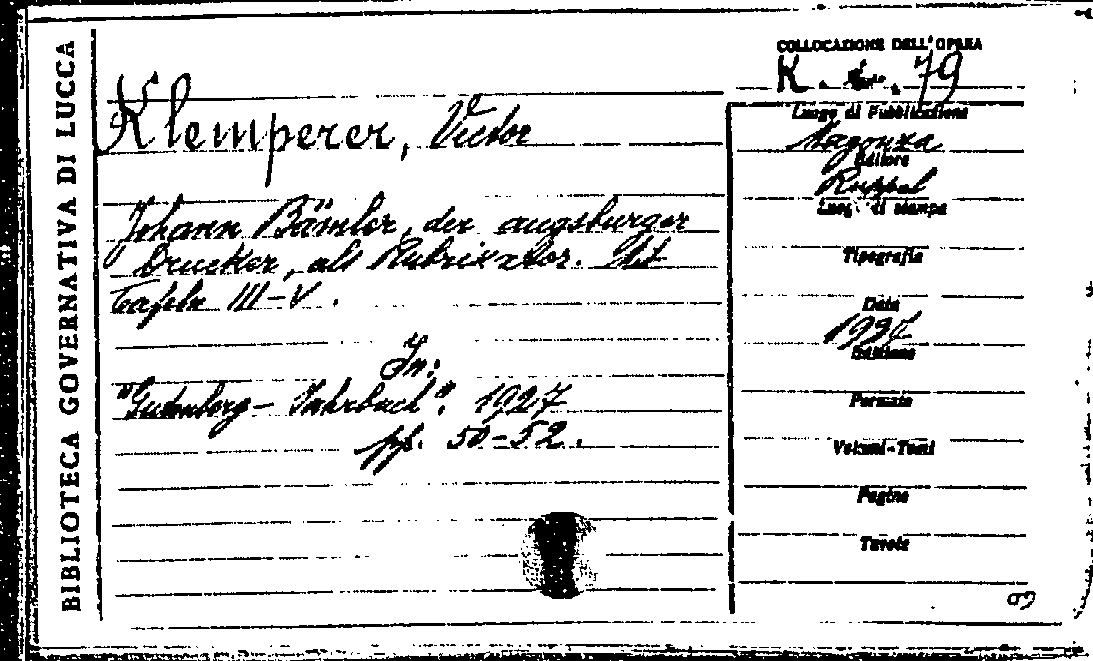 BIBLIOTECA GOVERNATIVA DI LUCCA
COLLOCAZIONE DELL'OPERA
K. 79
Klemperer, Victor
Johann Bämler, der augsburger
Drucker, als Rubrikator. Mit
Tafeln III-V.
In:
"Gutenberg-Jahrbuch". 1927
pp. 50-52.
Luogo di Pubblicazione
Magonza
Editore
Ruppel
Luogo di stampa
Tipografia
Data
1927
Edizione
Formato
Volumi-Tomi
Pagine
Tavole